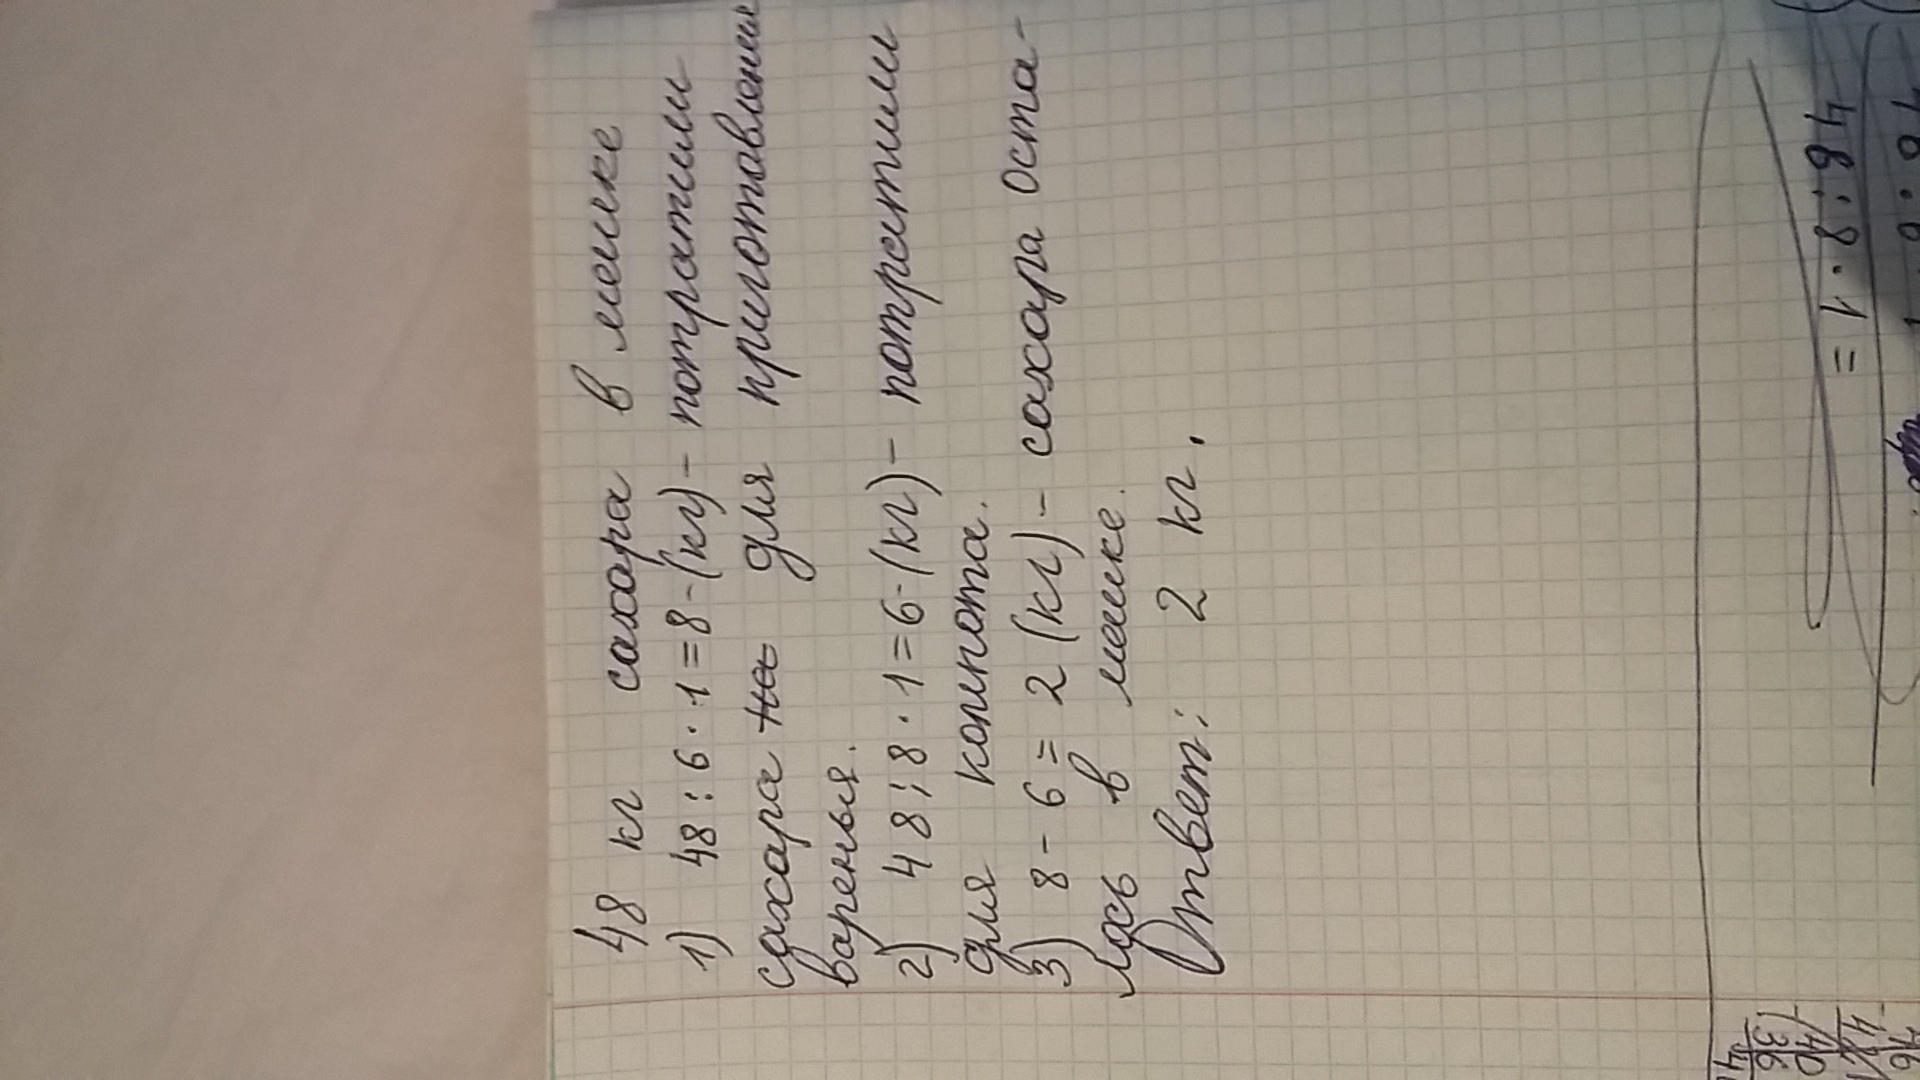 48 кг сахара в мешке
1) 48 : 6 · 1 = 8 - (кг) - потратили
сахара на для приготовления
варенья.
2) 48 : 8 · 1 = 6 - (кг) - потратили
для компота.
3) 8 - 6 = 2 (кг) - сахара оста-
лось в мешке.
Ответ: 2 кг.
48 : 8 · 1 =